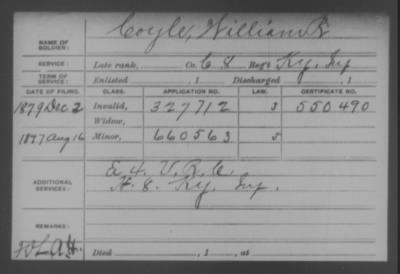 Coyle, William R
NAME OF SOLDIER:
SERVICE: Late rank, Co. C 8 Reg't Ky. Inf
TERM OF SERVICE: Enlisted , 1 Discharged , 1
DATE OF FILING. CLASS. APPLICATION NO. LAW. CERTIFICATE NO.
1879 Dec 2 Invalid, 327712 J 550490
Widow,
1897 Aug 16 Minor, 660563 J
ADDITIONAL SERVICES: E 4. V. R. C.
H. 8. Ky. Inf.
REMARKS:
Died , 1 , at